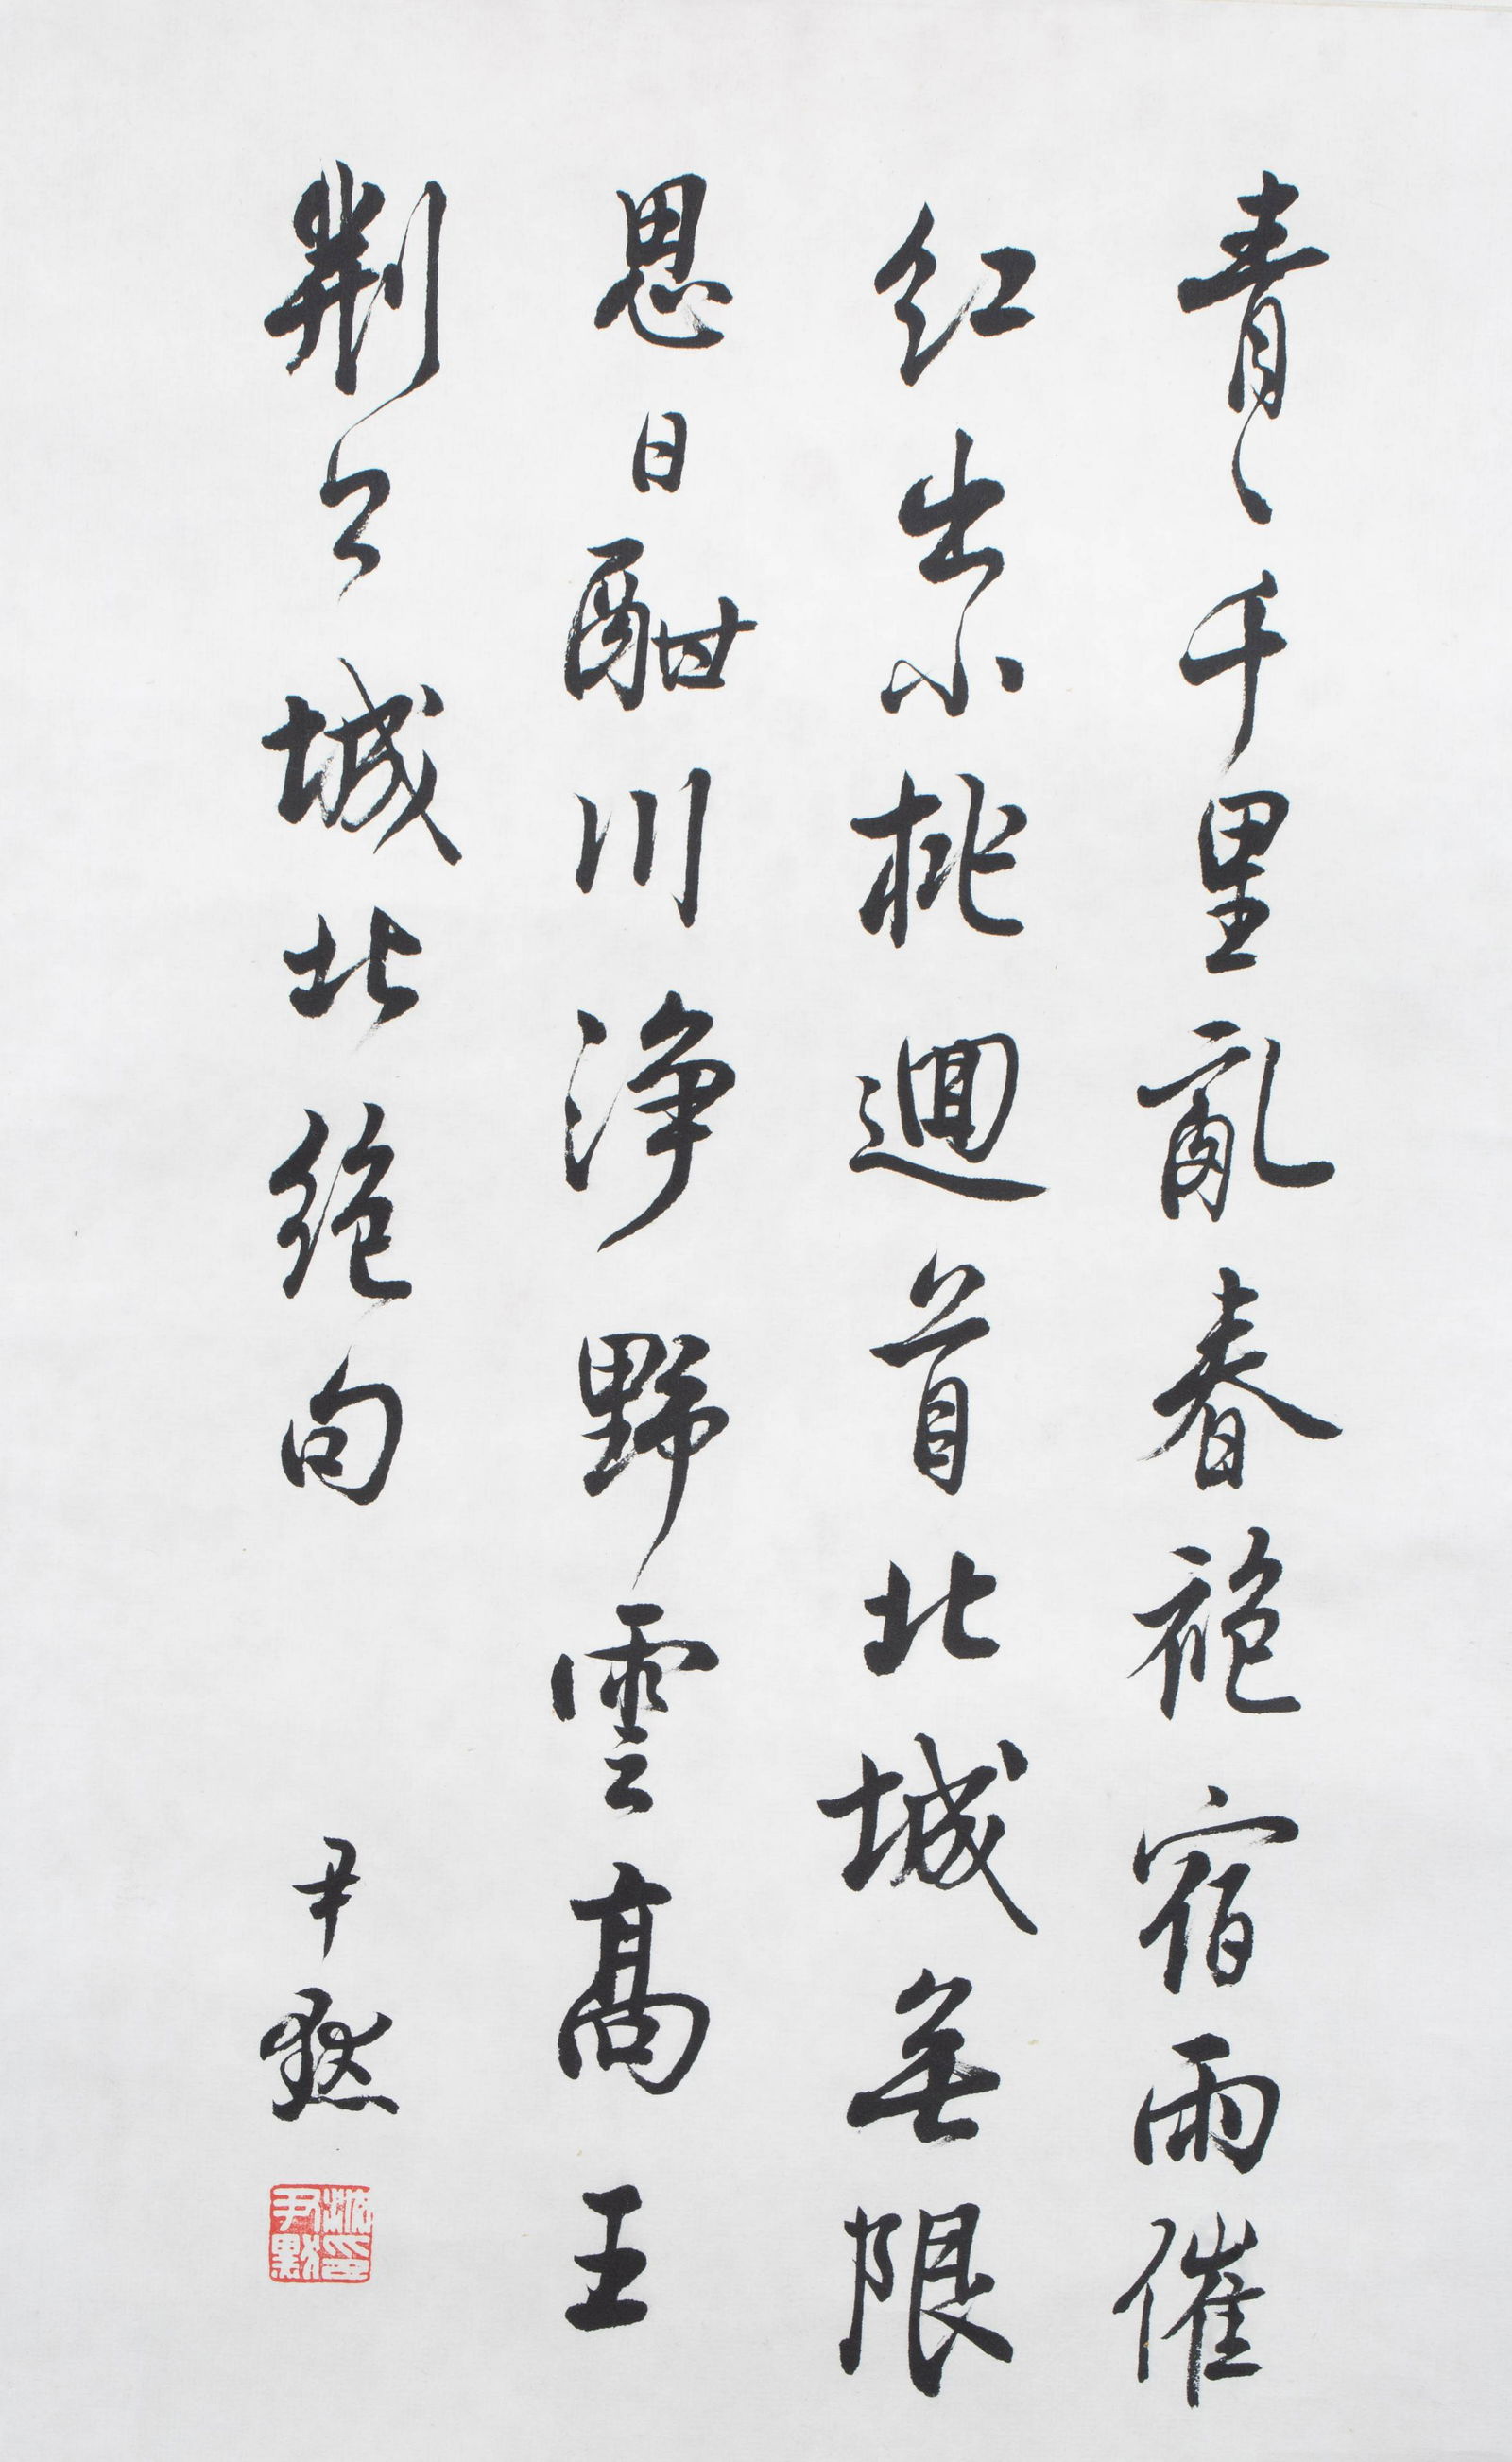 青々千里亂春袍宿雨催
紅出小桃迴首北城無限
思日酣川淨野雲高王
荆公城北絕句
尹默
沈尹默印